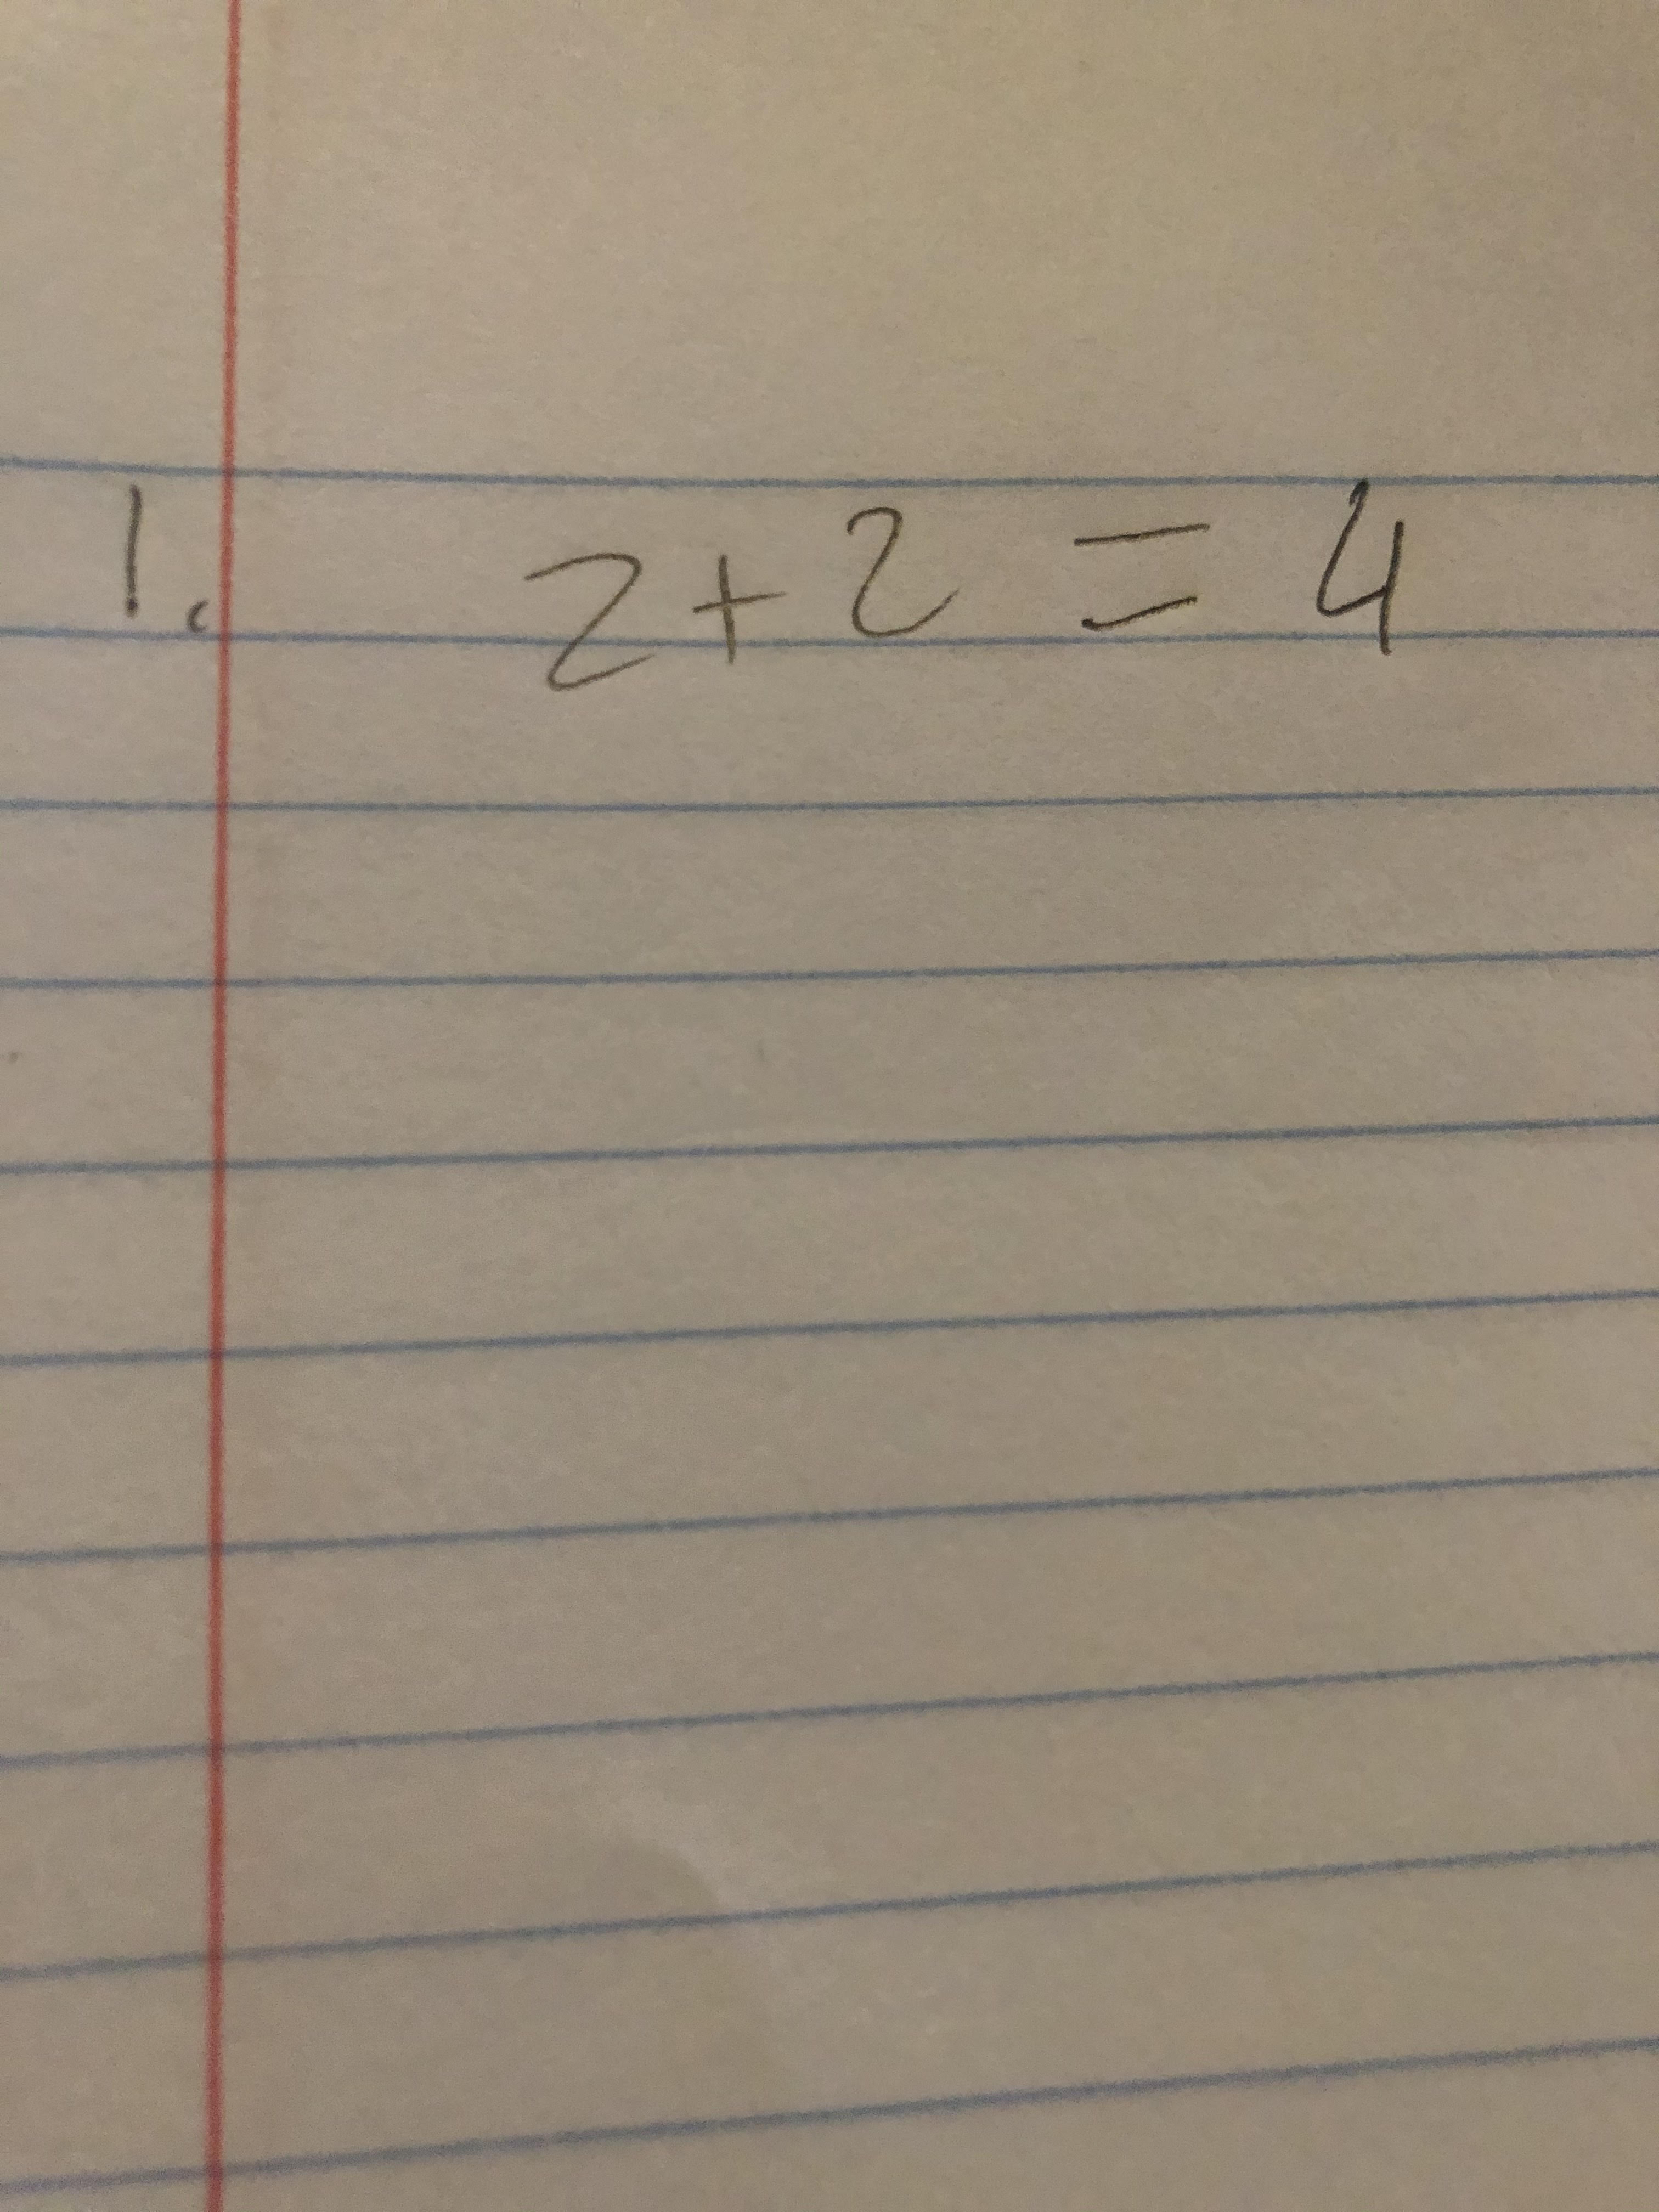 1. 2+2 = 4